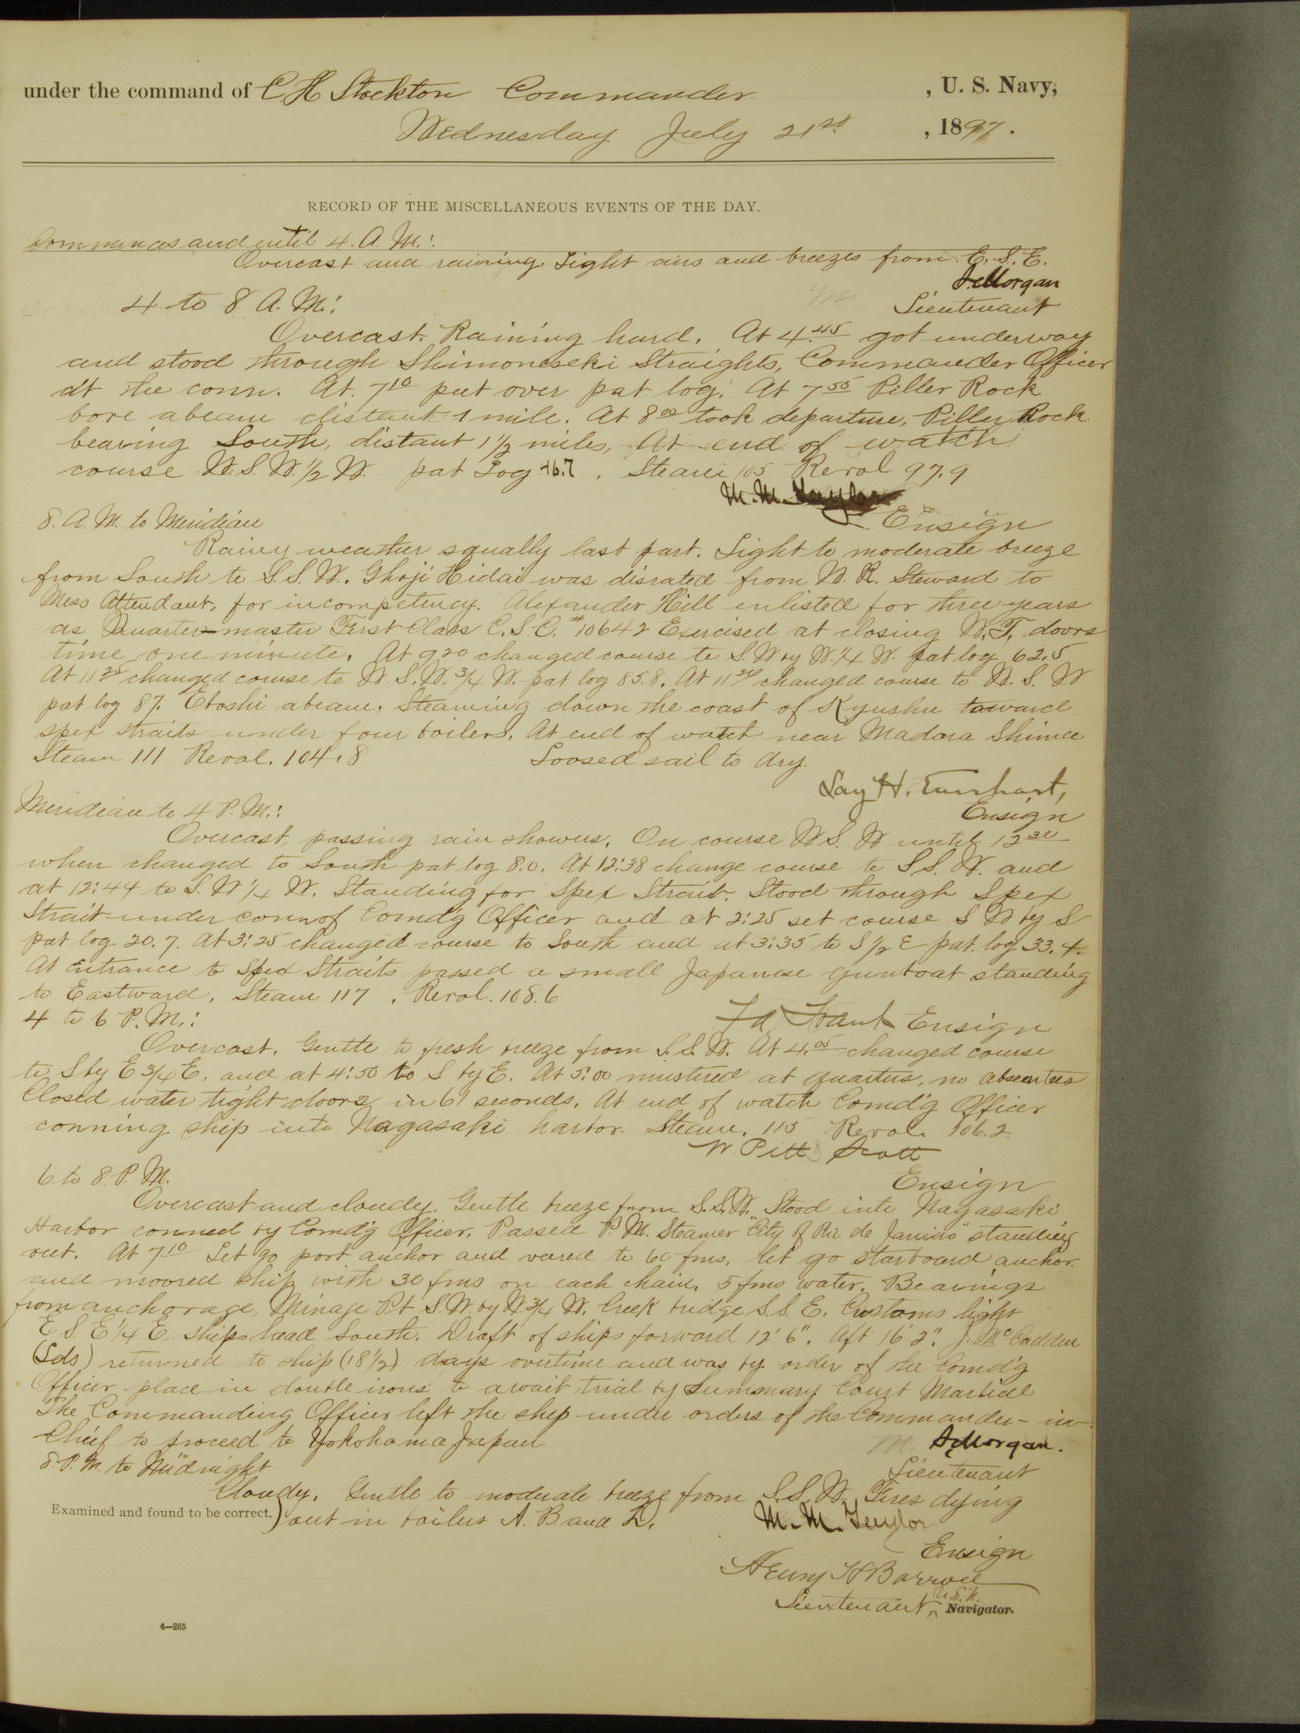 under the command of C H Stockton Commander , U. S. Navy,
Wednesday July 21st , 1897.
RECORD OF THE MISCELLANEOUS EVENTS OF THE DAY.
Commences and until 4. A. M.:
Overcast and raining. Light airs and breezes from E. S. E.
Morgan
Lieutenant
4 to 8 A. M.:
Overcast. Raining hard. At 4.45 got underway
and stood through Shimoneseki Straights, Commander Officer
at the conn. At 7 10 put over pat log. At 7 55 Piller Rock
bore abeam distant 1 mile. At 8 00 took departure, Piller Rock
bearing South, distant 1 1/2 miles, At end of watch
course W. S W. 1/2 W. pat Log 46.7 . Steam 105 Revol 97.9
M. M. Taylor
Ensign
8. A. M. to Meridian
Rainy weather squally last part. Light to moderate breeze
from South to S. S. W. Ghoji Hidai was disrated from W. R. Steward to
Mess Attendant, for incompetency. Alexander Hill enlisted for three years
as Quarter-master First Class C. S. C. #10642 Exercised at closing W. T. doors
time one minute. At 9 20 changed course to S. W by W. 1/4 W. pat log 62.5
At 11 25 changed course to W. S. W. 3/4 W. pat log 85.8. At 11 changed course to W. S. W
pat log 87. Eboshi abeam. Steaming down the coast of Kyushu toward
spex straits under four boilers. At end of watch near Madara Shima
Steam 111 Revol. 104.8 Loosed sail to dry.
Lay H. Everhart,
Ensign
Meridian to 4 P. M.:
Overcast, passing rain showers. On course W S. W until 12 30
when changed to South pat log 8.0. At 12:38 change course to S S. W. and
at 12:44 to S. W 1/4 W. Standing for Spex Strait. Stood through Spex
Strait under conn of Comd'g Officer and at 2:25 set course S W by S
pat log 20.7. At 3:25 changed course to South and at 3:35 to S 1/2 E pat. log 33.4.
At entrance to Spex Straits passed a small Japanese gunboat standing
to Eastward. Steam 117 . Revol. 108.6
4 to 6 P. M.:
Ensign
Overcast. Gentle to fresh breeze from S. S. W. At 4.05 changed course
to S by E 3/4 E. and at 4:50 to S by E. At 5:00 mustered at quarters, no absentees
Closed water tight doors in 61 seconds. At end of watch Comd'g Officer
conning ship into Nagasaki harbor. Steam. 115 Revol. 106.2
W. Pitt Scott
Ensign
6 to 8. P. M.
Overcast and cloudy. Gentle breeze from S. S. W. Stood into Nagasaki
Harbor conned by Comd'g Officer. Passed P. M. Steamer "City of Rio de Janiro" standing
out. At 7 10 Let go port anchor and veered to 60 fms. let go starboard anchor
and moored ship with 30 fms on each chain. 5 fms water. Bearings
from anchorage, Minage Pt S. W. by W 3/4 W. Creek bridge S. S E. Customs light
E S. E 1/4 E. ships head South. Draft of ships forward 12' 6". Aft 16' 2". J. McCadden
(Lds) returned to ship (18 1/2) days overtime and was by order of the Comd'g
Officer place in double irons to await trial by Summary Court Martial
The Commanding Officer left the ship under orders of the Commander-in-
Chief to proceed to Yokohama Japan.
Morgan.
Lieutenant
8. P. M. to Midnight
Cloudy. Gentle to moderate breeze from S. S. W. Fires dying
Examined and found to be correct.) out in boilers A. B and D.
M. M. Taylor
Ensign
Henry H Barroll
Lieutenant, U.S.N. Navigator.
4—265